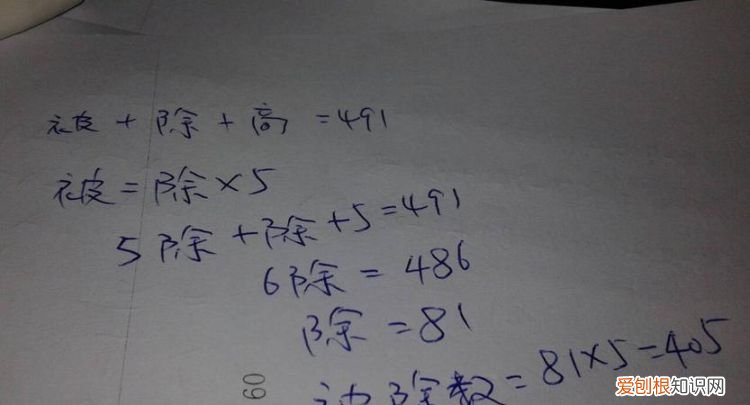 被 + 除 + 商 = 491
被 = 除 × 5
5除 + 除 + 5 = 491
6除 = 486
除 = 81
被除数 = 81×5 = 405
60
爱刨根知识网